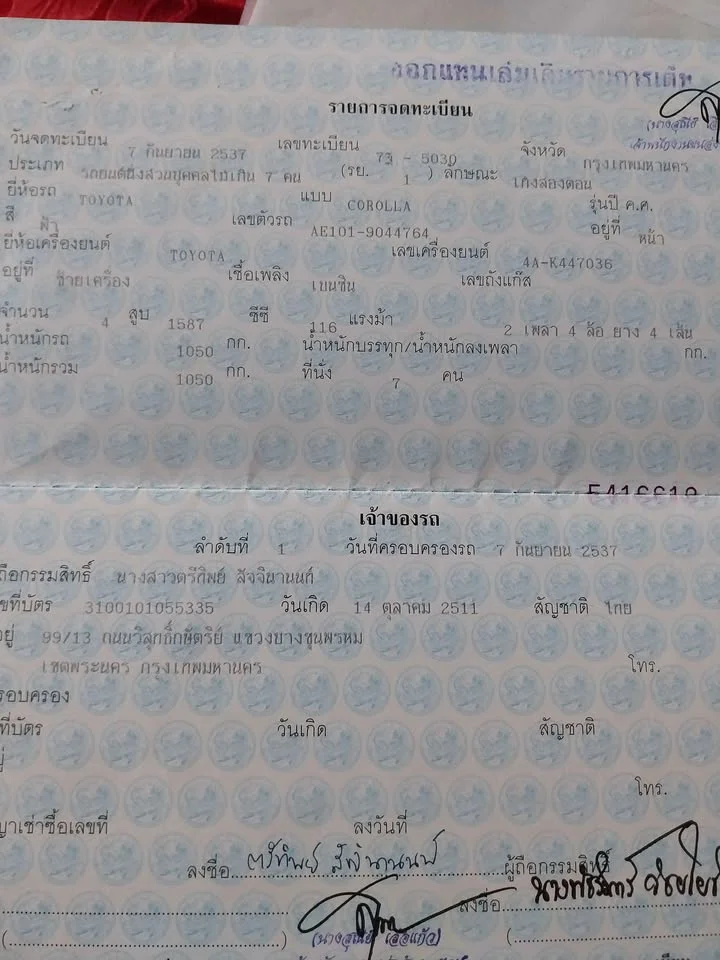 ออกแทนเล่มเดิมรายการเต็ม
รายการจดทะเบียน
วันจดทะเบียน 7 กันยายน 2537 เลขทะเบียน 7ว - 5030 จังหวัด กรุงเทพมหานคร
ประเภท รถยนต์นั่งส่วนบุคคลไม่เกิน 7 คน (รย. 1 ) ลักษณะ เก๋งสองตอน
ยี่ห้อรถ TOYOTA แบบ COROLLA รุ่นปี ค.ศ.
สี ฟ้า เลขตัวรถ AE101-9044764 อยู่ที่ หน้า
ยี่ห้อเครื่องยนต์ TOYOTA เลขเครื่องยนต์ 4A-K447036
อยู่ที่ ซ้ายเครื่อง เชื้อเพลิง เบนซิน เลขถังแก๊ส
จำนวน 4 สูบ 1587 ซีซี 116 แรงม้า 2 เพลา 4 ล้อ ยาง 4 เส้น
น้ำหนักรถ 1050 กก. น้ำหนักบรรทุก/น้ำหนักลงเพลา กก.
น้ำหนักรวม 1050 กก. ที่นั่ง 7 คน
เจ้าของรถ
ลำดับที่ 1 วันที่ครอบครองรถ 7 กันยายน 2537
ถือกรรมสิทธิ์ นางสาวตรีทิพย์ สัจจินานนท์
ขที่บัตร 3100101055335 วันเกิด 14 ตุลาคม 2511 สัญชาติ ไทย
อยู่ 99/13 ถนนวิสุทธิ์กษัตริย์ แขวงบางขุนพรหม
เขตพระนคร กรุงเทพมหานคร โทร.
รอบครอง
ที่บัตร วันเกิด สัญชาติ
โทร.
ญาเช่าซื้อเลขที่ ลงวันที่
ลงชื่อ ตรีทิพย์ สัจจินานนท์ ผู้ถือกรรมสิทธิ์
ลงชื่อ